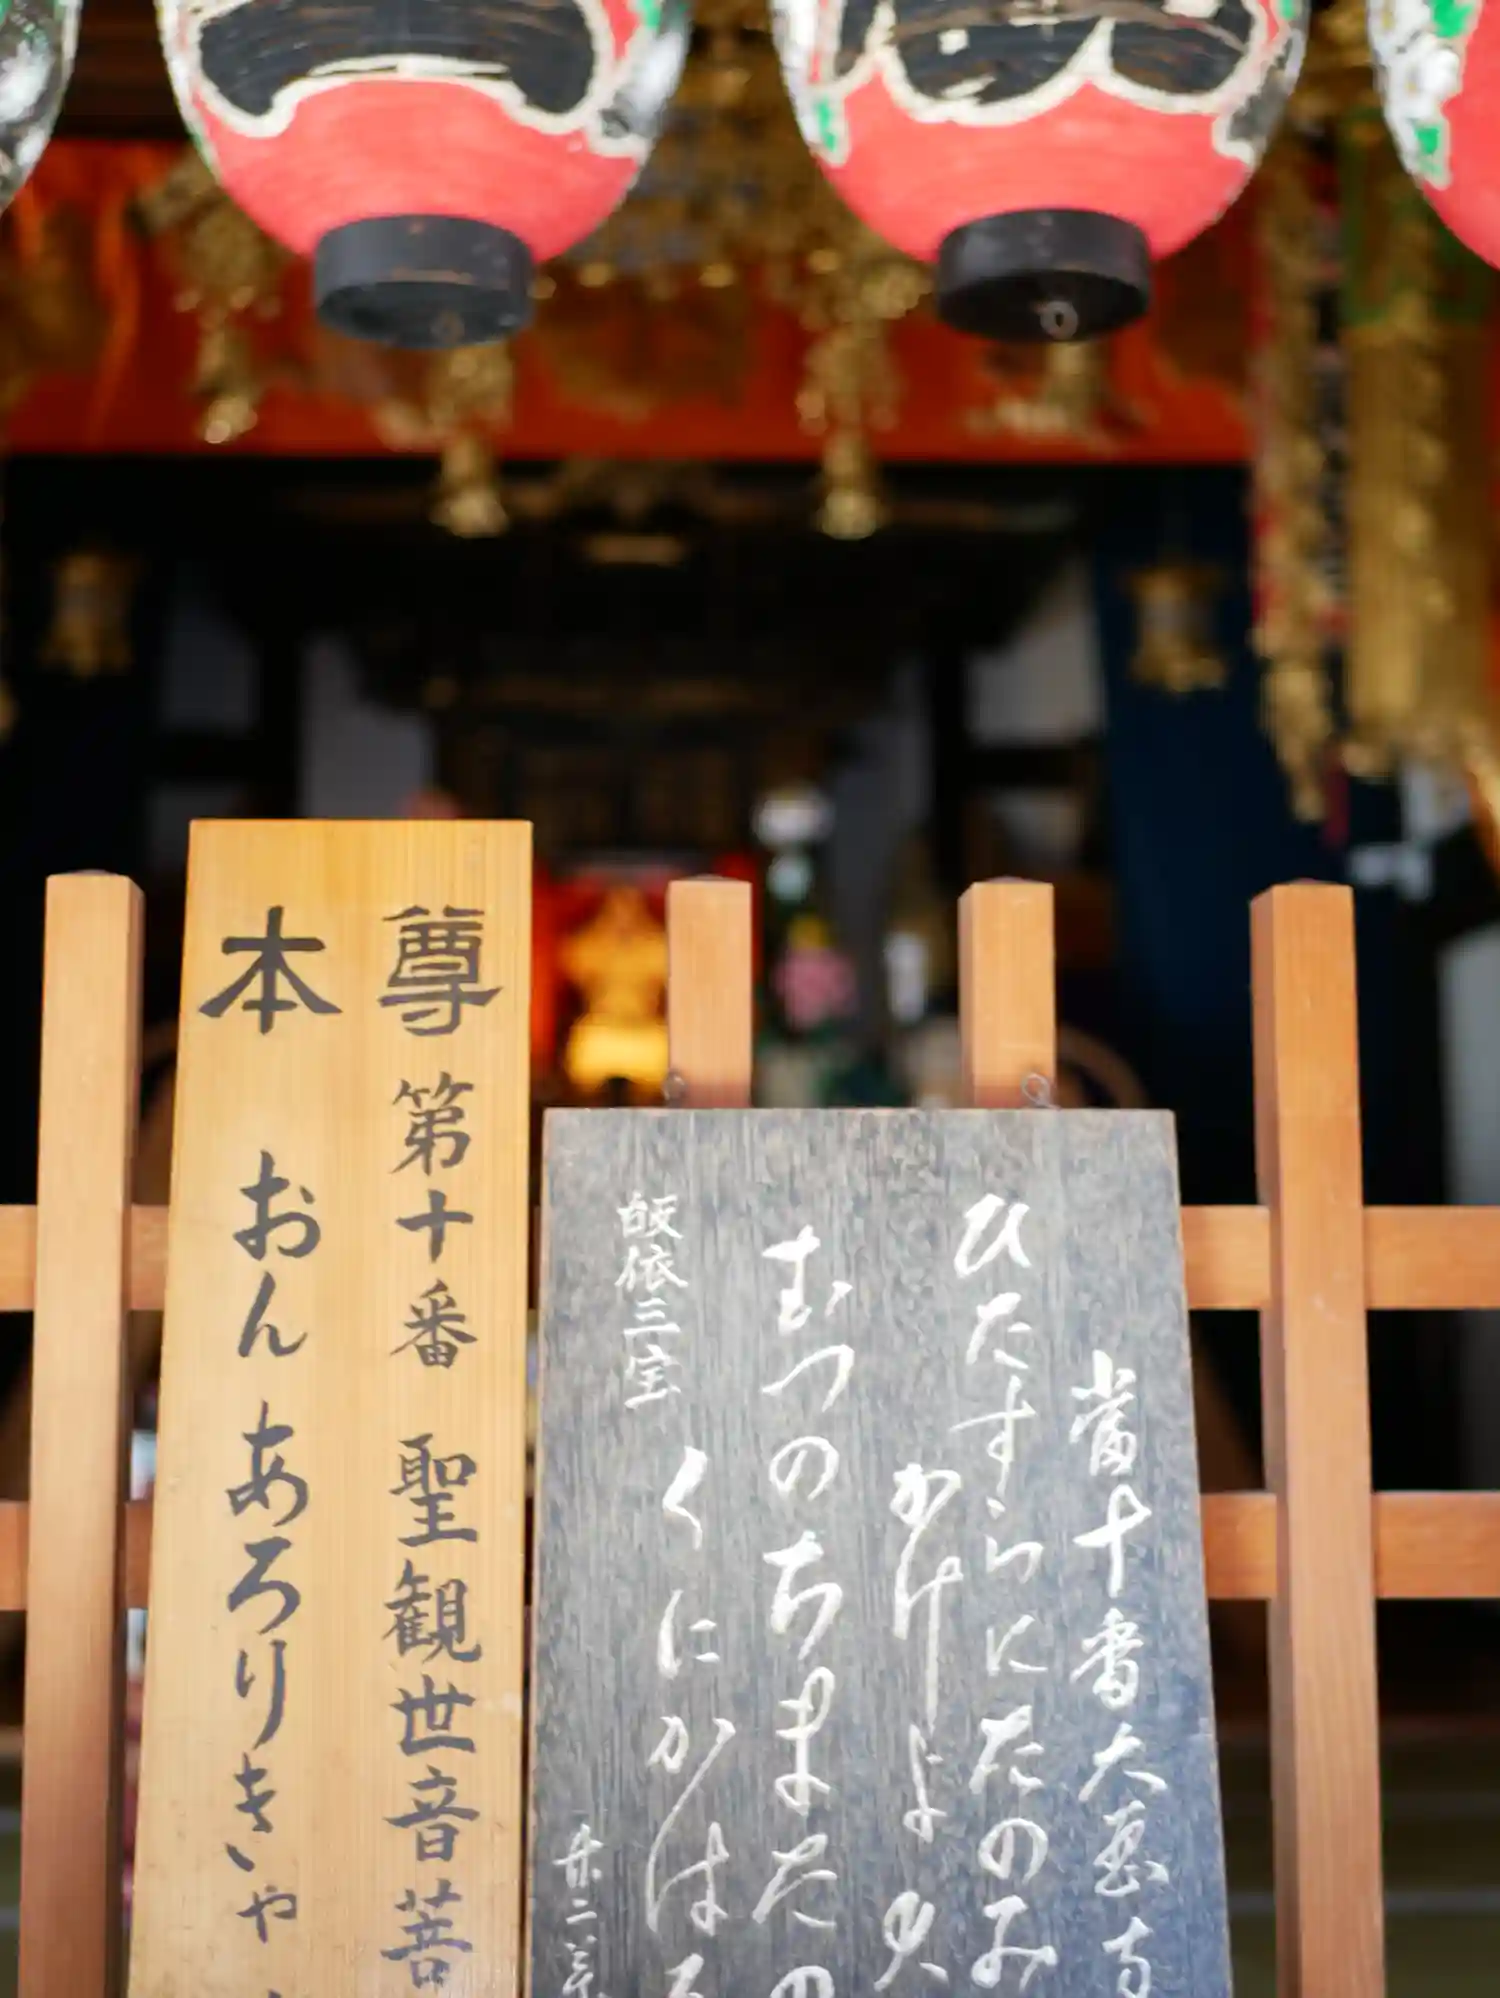 本尊
第十番 聖観世音菩
おん あろりきゃ
當十番大慈寺
ひたすらにたのみ
かけよ
むつのちまたの
くにかはる
皈依三宝